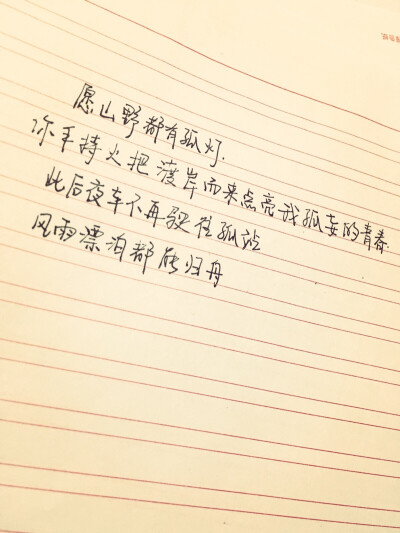 愿山野都有孤灯.
你手持火把渡岸而来点亮我孤妄的青春
此后夜车不再驶往孤站
风雨漂泊都能归舟